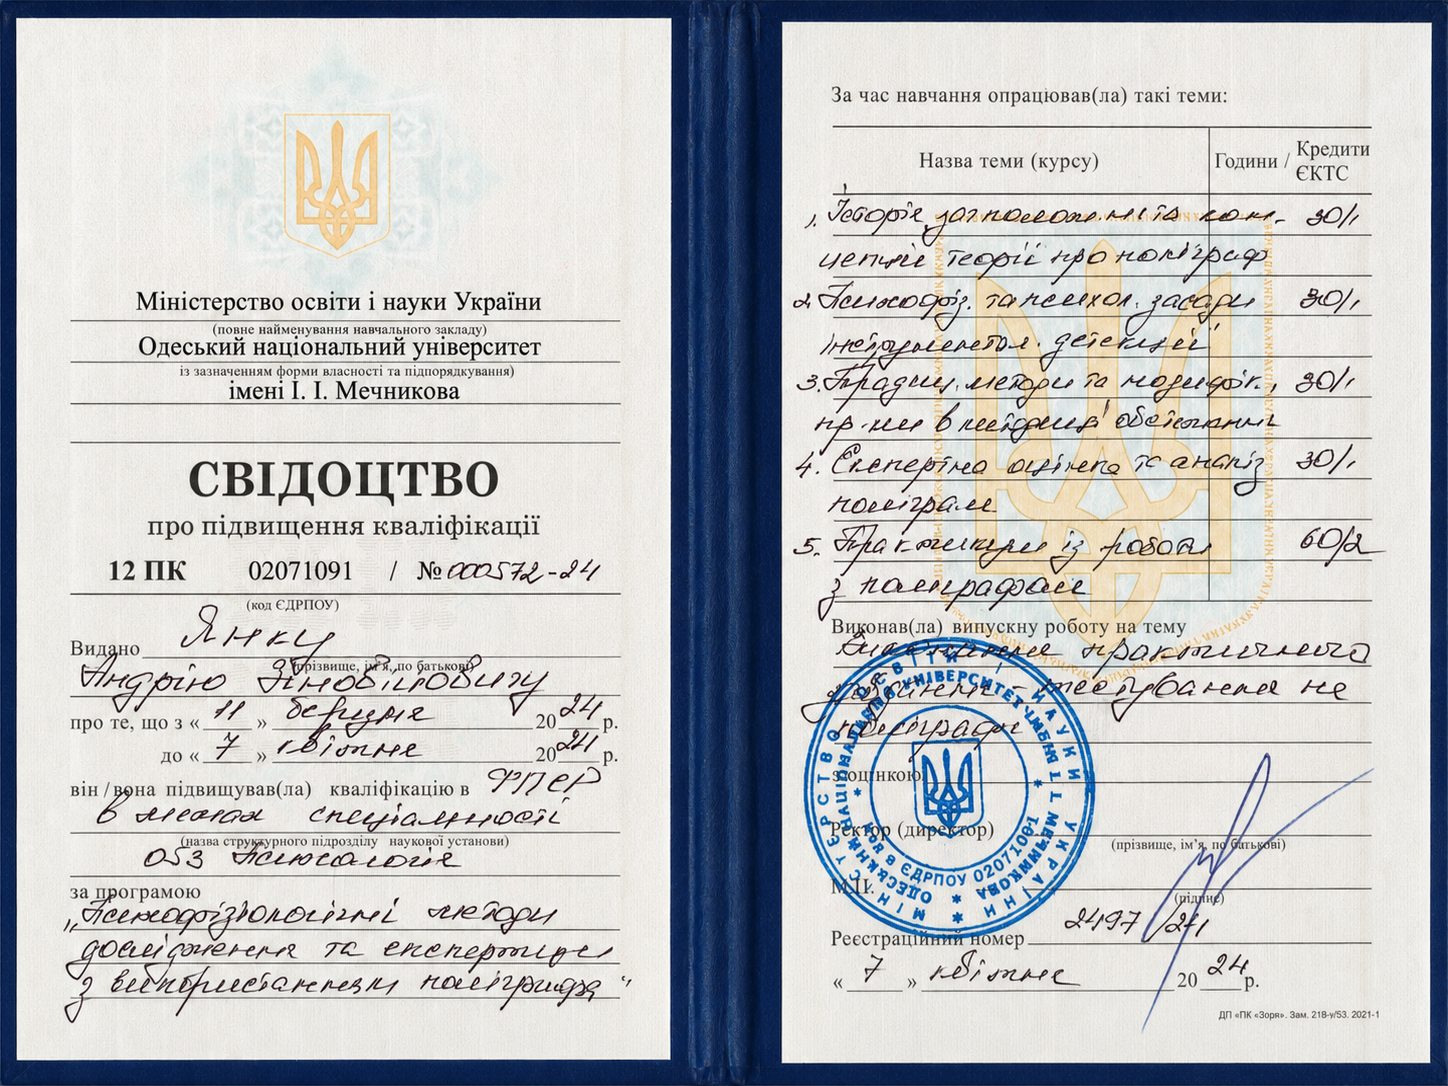 Міністерство освіти і науки України
(повне найменування навчального закладу)
Одеський національний університет
із зазначенням форми власності та підпорядкування)
імені І. І. Мечникова
СВІДОЦТВО
про підвищення кваліфікації
12 ПК 02071091 / № 000572-24
(код ЄДРПОУ)
Видано Янку
(прізвище, ім'я, по батькові)
Андрію Зіновійовичу
про те, що з « 11 » березня 2024 р.
до « 7 » квітня 2024 р.
він / вона підвищував(ла) кваліфікацію в ФПСР
в межах спеціальності
(назва структурного підрозділу наукової установи)
053 Психологія
за програмою
„Психофізіологічні методи
дослідження та експертизи
з використанням поліграфа“
За час навчання опрацював(ла) такі теми:
Назва теми (курсу) Години / Кредити ЄКТС
1. Історія, та кон- 30/1
цепції теорії про поліграф
2. Психофіз. та психол. засади 30/1
інструментал. детекції
3. Традиц. методи та модифік., 30/1
в методиці обстеження
4. Експертна оцінка та аналіз 30/1
поліграм
5. Практикум із роботи 60/2
з поліграфом
Виконав(ла) випускну роботу на тему
Виконання практичного
завдання - тестування на
поліграфі
з оцінкою
Ректор (директор)
(прізвище, ім'я, по батькові)
М.П.
(підпис)
Реєстраційний номер 2497/24
« 7 » квітня 2024 р.
ДП «ПК «Зоря». Зам. 218-у/53. 2021-1